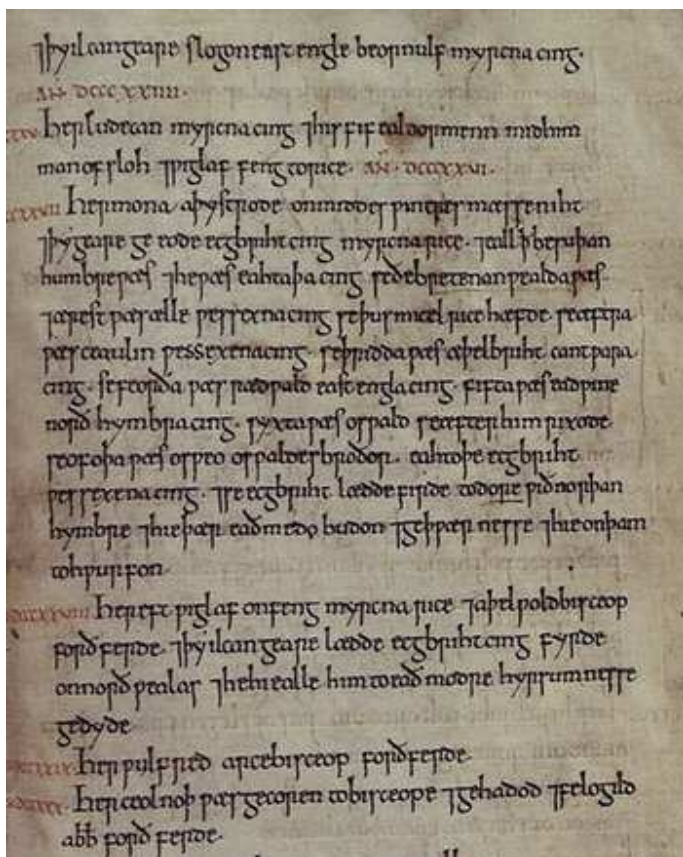 ⁊ þy ilcan geare slogon east engle beornulf myrcna cing.
AN̄. DCCCXXIIII.
Her ludecan myrcna cing ⁊ his fif ealdormenn mid him
man ofsloh ⁊ wiglaf feng to rice. AN̄. DCCCXXVI.
Her mona aþystrode on middes wintres mæsseniht
⁊ þy geare ge eode ecgbriht cing myrcna rice. ⁊ eall þ be suþan
humbre wæs ⁊ he wæs eahtaþa cing se ðe bretenanwealda wæs.
⁊ ærest wæs ælle sexna cing se þus micel rice hæfde. se æftra
wæs ceaulin wessexena cing. se þridda wæs æþelbriht cantwara
cing. se feorða wæs rædwald east engla cing. fifta wæs eadwine
norð hymbra cing. syxta wæs oswald se æfter him rixode.
seofoþa wæs osweo oswaldes broðor. eahtoþe ecgbriht
wessexena cing. ⁊ se ecgbriht lædde firde to dore wið norþan
hymbre ⁊ hie þær eadmedo budon ⁊ geþwærnesse ⁊ hie on þam
tohwurfon.
Her eft wiglaf onfeng myrcna rice ⁊ aþelwold bisceop
forðferde. ⁊ þy ilcan geare lædde ecgbriht cing fyrde
on norð wealas ⁊ he hie ealle him to eaðmodre hyrsumnesse
gedyde.
Her wulfred arcebisceop forðferde.
Her ceolnoþ wæs gecoren to bisceope ⁊ gehadod ⁊ felogild
abb̄ forð ferde.